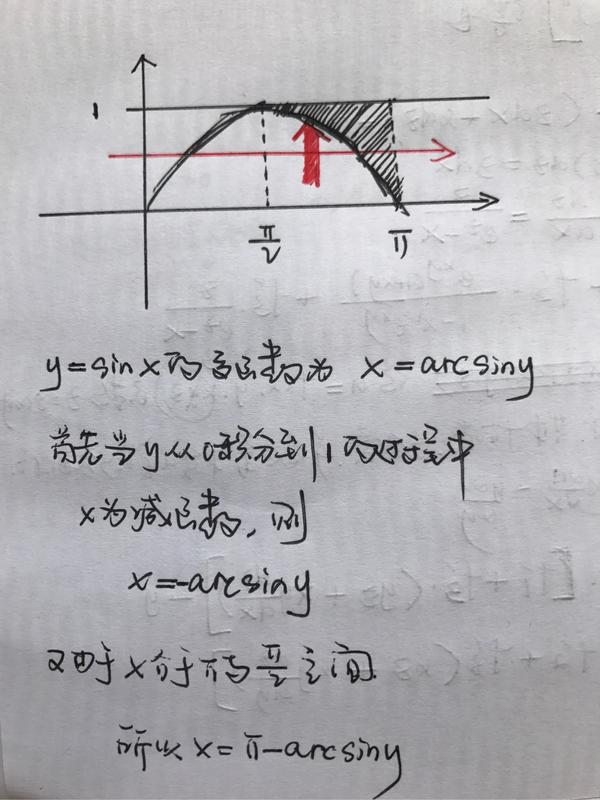 1
π/2
π
y=sinx的反函数为 x=arcsiny
首先当y从0积分到1的过程中
x为减函数,则
x=-arcsiny
又由于x介于π与π/2之间.
所以x=π-arcsiny